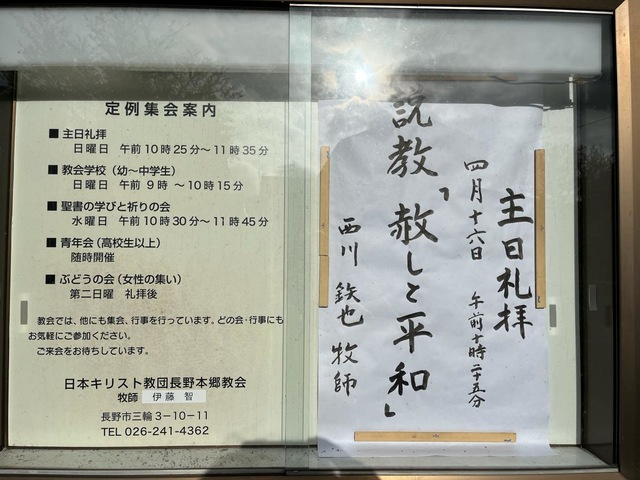 定例集会案内
■主日礼拝
日曜日 午前10時25分～11時35分
■教会学校(幼～中学生)
日曜日 午前 9時 ～10時15分
■聖書の学びと祈りの会
水曜日 午前10時30分～11時45分
■青年会(高校生以上)
随時開催
■ぶどうの会(女性の集い)
第二日曜 礼拝後
教会では、他にも集会、行事を行っています。どの会・行事にも
お気軽にご参加ください。
ご来会をお待ちしています。
日本キリスト教団長野本郷教会
牧師 伊藤 智
長野市三輪3-10-11
TEL 026-241-4362
主日礼拝
四月十六日 午前十時二十五分
説教「赦しと平和」
西川 鉄也 牧師